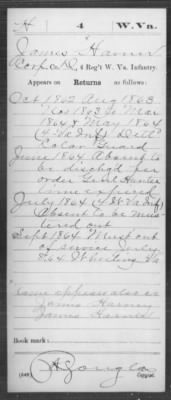 H 4 W. Va.
James Harner
Corp, Co. D, 4 Reg't W. Va. Infantry.
Appears on Returns as follows:
Oct 1862 Aug 1863
Nov 1863 to Mar
1864 & May 1864
(4 Va Inf) Det
Color Guard
June 1864 Absent to
be dischg'd per
order Genl Hunter
time expired
July 1864 (4 W Va Inf)
Absent to be mus
tered out
Sept 1864 Must out
of service July
1864 Wheeling Va
Name appears also as
James Harney
James Harner
Book mark:
(646)
Copyist.